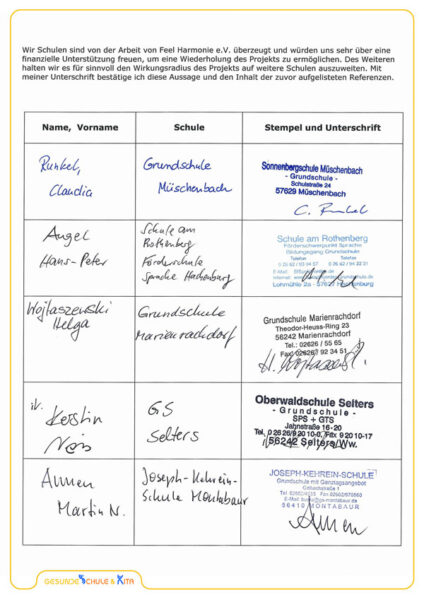 Wir Schulen sind von der Arbeit von Feel Harmonie e.V. überzeugt und würden uns sehr über eine
finanzielle Unterstützung freuen, um eine Wiederholung des Projekts zu ermöglichen. Des Weiteren
halten wir es für sinnvoll den Wirkungsradius des Projekts auf weitere Schulen auszuweiten. Mit
meiner Unterschrift bestätige ich diese Aussage und den Inhalt der zuvor aufgelisteten Referenzen.
Name, Vorname
Schule
Stempel und Unterschrift
Runkel,
Claudia
Grundschule
Müschenbach
Sonnenbergschule Müschenbach
- Grundschule -
Schulstraße 24
57629 Müschenbach
C. Runkel
Angel
Hans-Peter
Schule am
Rothenberg
Förderschule
Sprache Hachenburg
Schule am Rothenberg
Förderschwerpunkt Sprache
Bildungsgang Grundschule
Telefon Telefax
Lohmühle 2a - 57627 Hachenburg
Wojtaszewski
Helga
Grundschule
Marienrachdorf
Grundschule Marienrachdorf
Theodor-Heuss-Ring 23
56242 Marienrachdorf
Tel.: 02626 / 55 65
Fax: 02626 / 92 34 51
H. Wojtaszewski
Kerstin
GS
Selters
Oberwaldschule Selters
- Grundschule -
SPS + GTS
Jahnstraße 16-20
56242 Selters/Ww.
Ahmen
Martin N.
Joseph-Kehrein-
Schule Montabaur
JOSEPH-KEHREIN-SCHULE
Grundschule mit Ganztagsangebot
56410 MONTABAUR
Ahmen
GESUNDE SCHULE & KITA